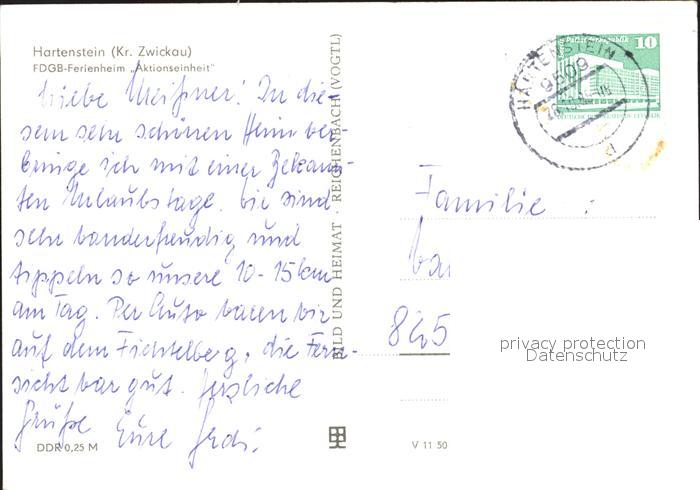 Hartenstein (Kr. Zwickau)
FDGB-Ferienheim „Aktionseinheit"
Liebe Meißner! In die-
sem sehr schönen Heim ver
bringe ich mit einer Bekann-
ten Urlaubstage. Wir sind
sehr wanderfreudig und
tippeln so unsere 10-15 km
am Tag. Per Auto waren wir
auf dem Fichtelberg, die Fern-
sicht war gut. Herzliche
Grüße Eure
DDR 0,25 M
BILD UND HEIMAT · REICHENBACH (VOGTL)
V 11 50
HARTENSTEIN
9509
10
Familie
825
privacy protection
Datenschutz